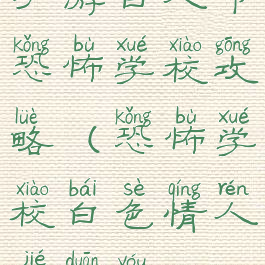 kǒng bù xué xiào gōng
恐怖学校攻
lüè kǒng bù xué
略（恐怖学
xiào bái sè qíng rén
校白色情人
jié duān yóu